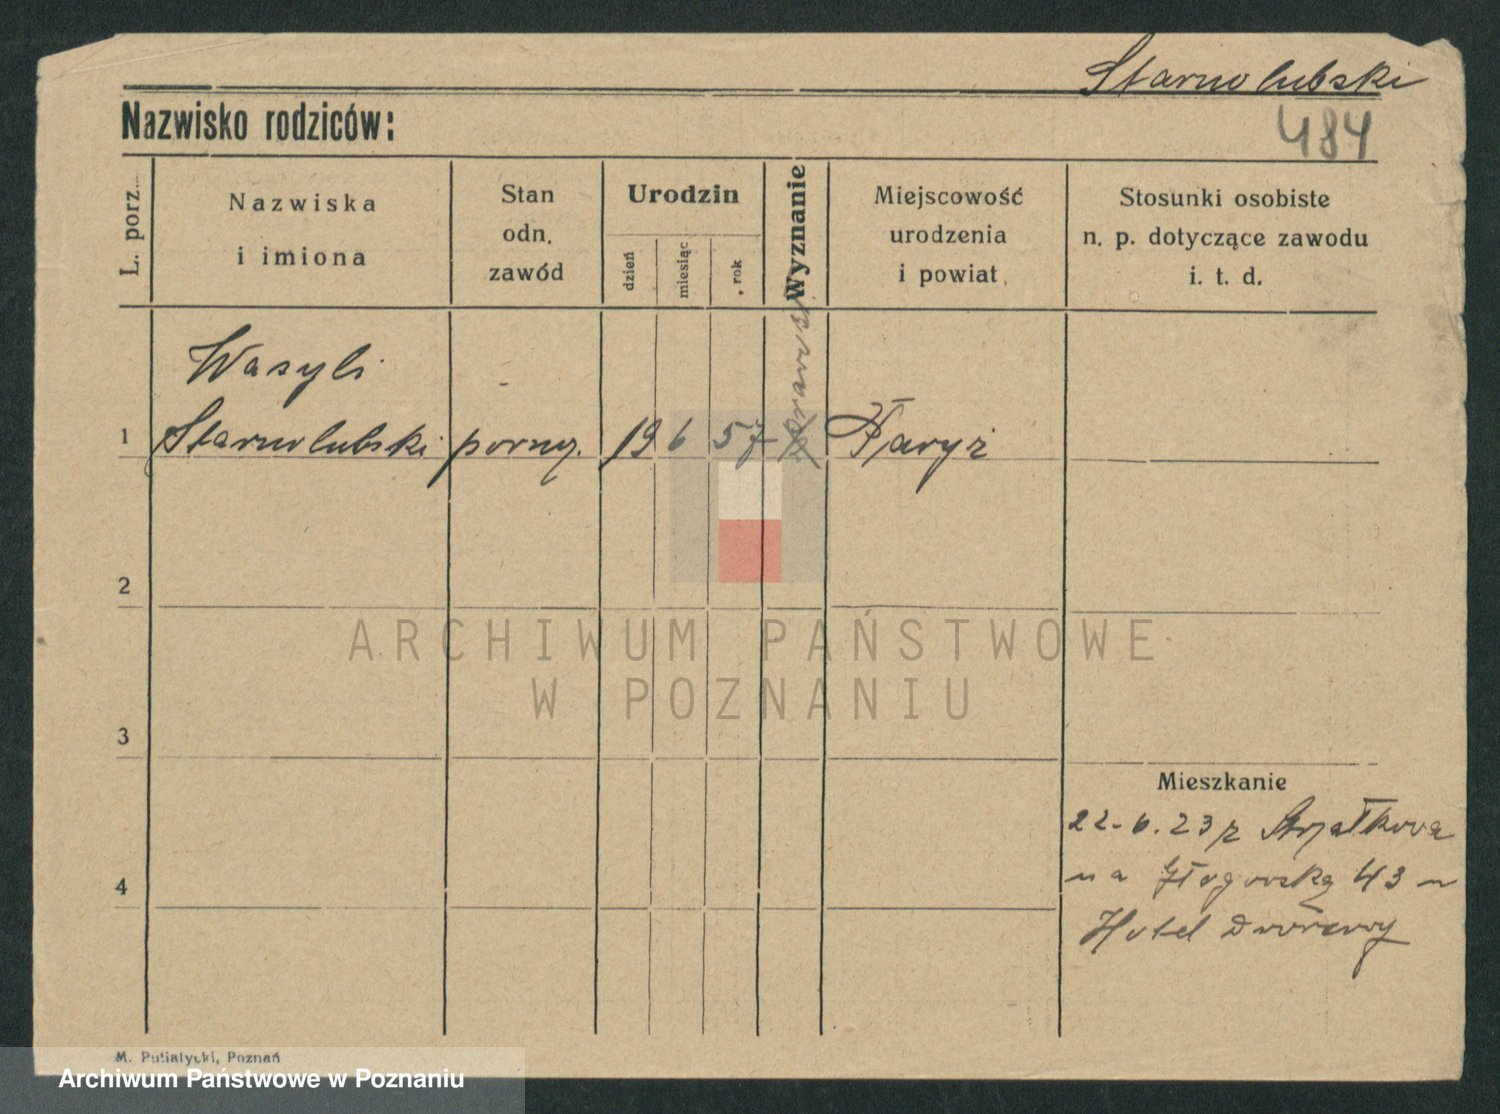 Starnolubski
Nazwisko rodziców:
484
L. porz.
Nazwiska
i imiona
Stan
odn.
zawód
Urodzin
dzień
miesiąc
rok
Wyznanie
Miejscowość
urodzenia
i powiat
Stosunki osobiste
n. p. dotyczące zawodu
i. t. d.
Wasyli
1 Starnolubski 19 6 57
2
ARCHIWUM PAŃSTWOWE
W POZNANIU
3
Mieszkanie
22-6.23 z Strzałkowa
na Głogowską 43
4
Hotel Dworcowy
M. Putiatycki, Poznań
Archiwum Państwowe w Poznaniu